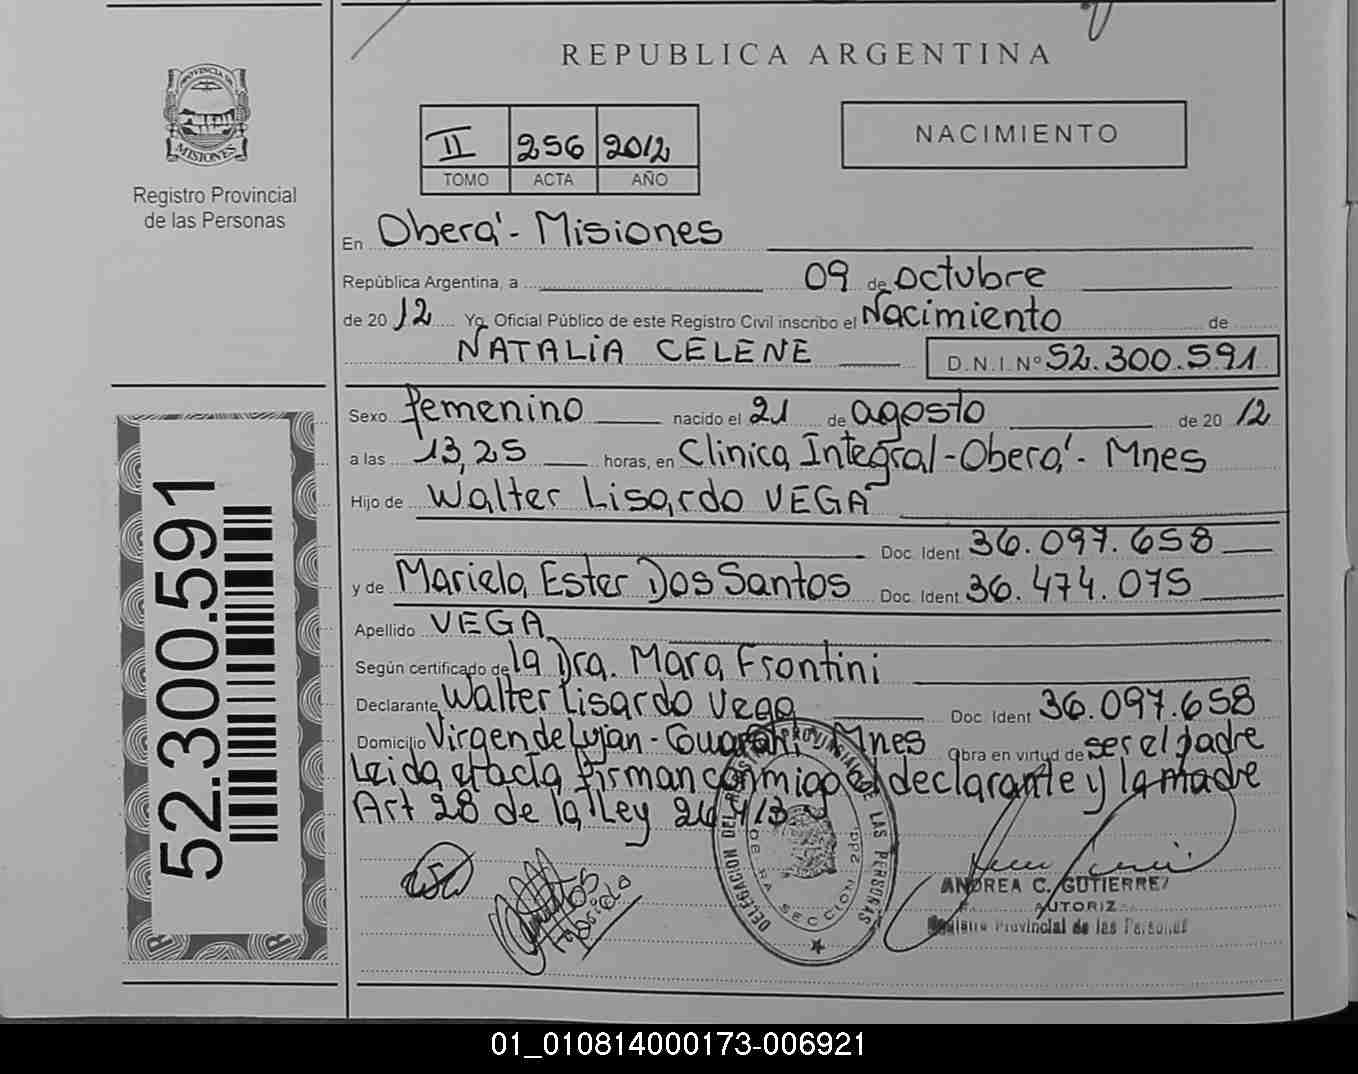 REPUBLICA ARGENTINA
PROVINCIA DE
MISIONES
Registro Provincial
de las Personas
II 256 2012
TOMO ACTA AÑO
NACIMIENTO
En Oberá - Misiones
República Argentina, a 09 de octubre
de 2012 Yo, Oficial Público de este Registro Civil inscribo el Nacimiento de
NATALIA CELENE D.N.I. Nº 52.300.591
Sexo femenino nacido el 21 de agosto de 2012
a las 13,25 horas, en Clinica Integral - Oberá - Mnes
Hijo de Walter Lisardo VEGA
Doc. Ident. 36.097.658
y de Mariela Ester Dos Santos Doc. Ident. 36.474.075
Apellido VEGA
Según certificado de la Dra. Mara Frontini
Declarante Walter Lisardo Vega Doc. Ident 36.097.658
Domicilio Virgen de Luján - Guaraní - Mnes Obra en virtud de ser el padre
Leida el acta firman conmigo el declarante y la madre
Art 28 de la Ley 26413
DELEGACION DEL REGISTRO PROVINCIAL DE LAS PERSONAS
SECCION 2da
ANDREA C. GUTIERREZ
AUTORIZ
Registro Provincial de las Personas
52.300.591
01_010814000173-006921